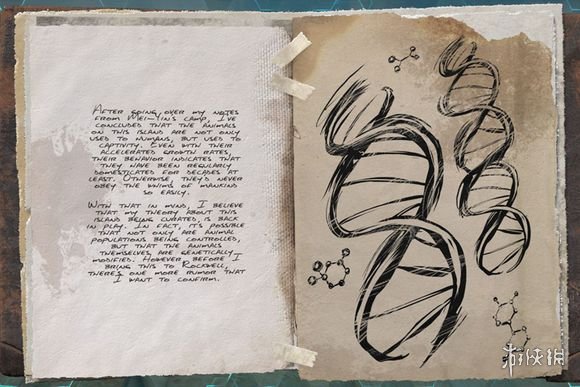 After going over my notes
from Mei-Yin's camp, I've
concluded that the animals
on this island are not only
used to humans, but used to
captivity. Even with their
accelerated growth rates,
their behavior indicates that
they have been regularly
domesticated for decades at
least. Otherwise, they'd never
obey the whims of mankind
so easily.
With that in mind, I believe
that my theory about this
island being curated, is back
in play. In fact, it's possible
that not only are animal
populations being controlled,
but that the animals
themselves, are genetically
modified. However, before I
bring this to Rockwell,
there's one more rumor that
I want to confirm.
游侠网